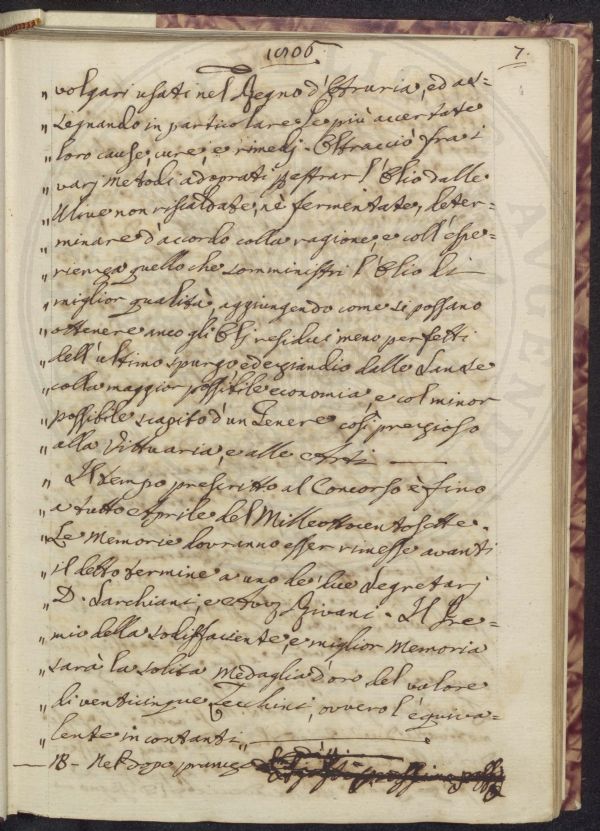 1806. 7.
„ volgari usati nel Regno d'Etruria, ed as=
„ segnando in particolare le più accertate
„ loro cause, cure, e rimedj. Oltracciò fra i
„ varj metodi adoprati p estrar l'Olio dalle
„ Ulive non riscaldate, nè fermentate, deter=
„ minare d'accordo colla ragione, e coll'espe=
„ rienza quello che somministri l'Olio di
„ miglior qualità, aggiungendo come si possano
„ ottenere anco gli Olj residui meno perfetti
„ dell'ultimo spurgo, ed eziandio dalle Sanse
„ colla maggior possibile economia, e col minor
„ possibile scapito d'un Genere così prezioso
„ alla Vittuaria, e alle Arti
„ Il tempo prescritto al Concorso è fino
„ a tutto Aprile del Milleottocentosette.
„ Le Memorie dovranno esser rimesse avanti
„ il detto termine a uno de' due Segretarj
„ D. Sarchiani, e Avv Rivani. Il Pre=
„ mio della sodisfaciente, e miglior Memoria
„ sarà la solita Medaglia d'oro del valore
„ di venticinque Zecchini, ovvero l'equiva=
„ lente in contanti„
18 - Nel dopo pranzo